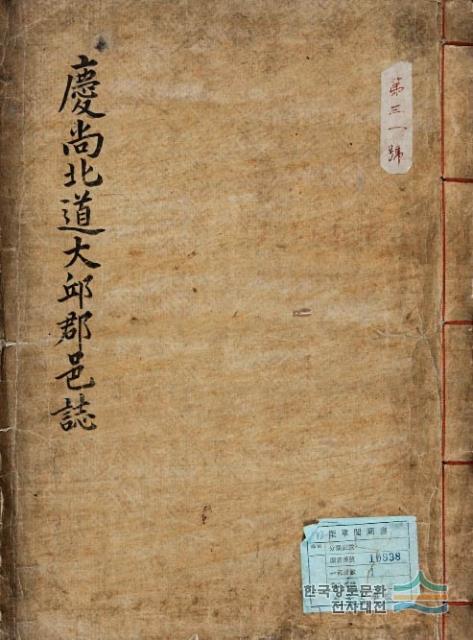 慶尚北道大邱郡邑誌
第三一號
奎章閣圖書
分類記號
圖書番號 10838
한국향토문화
전자대전